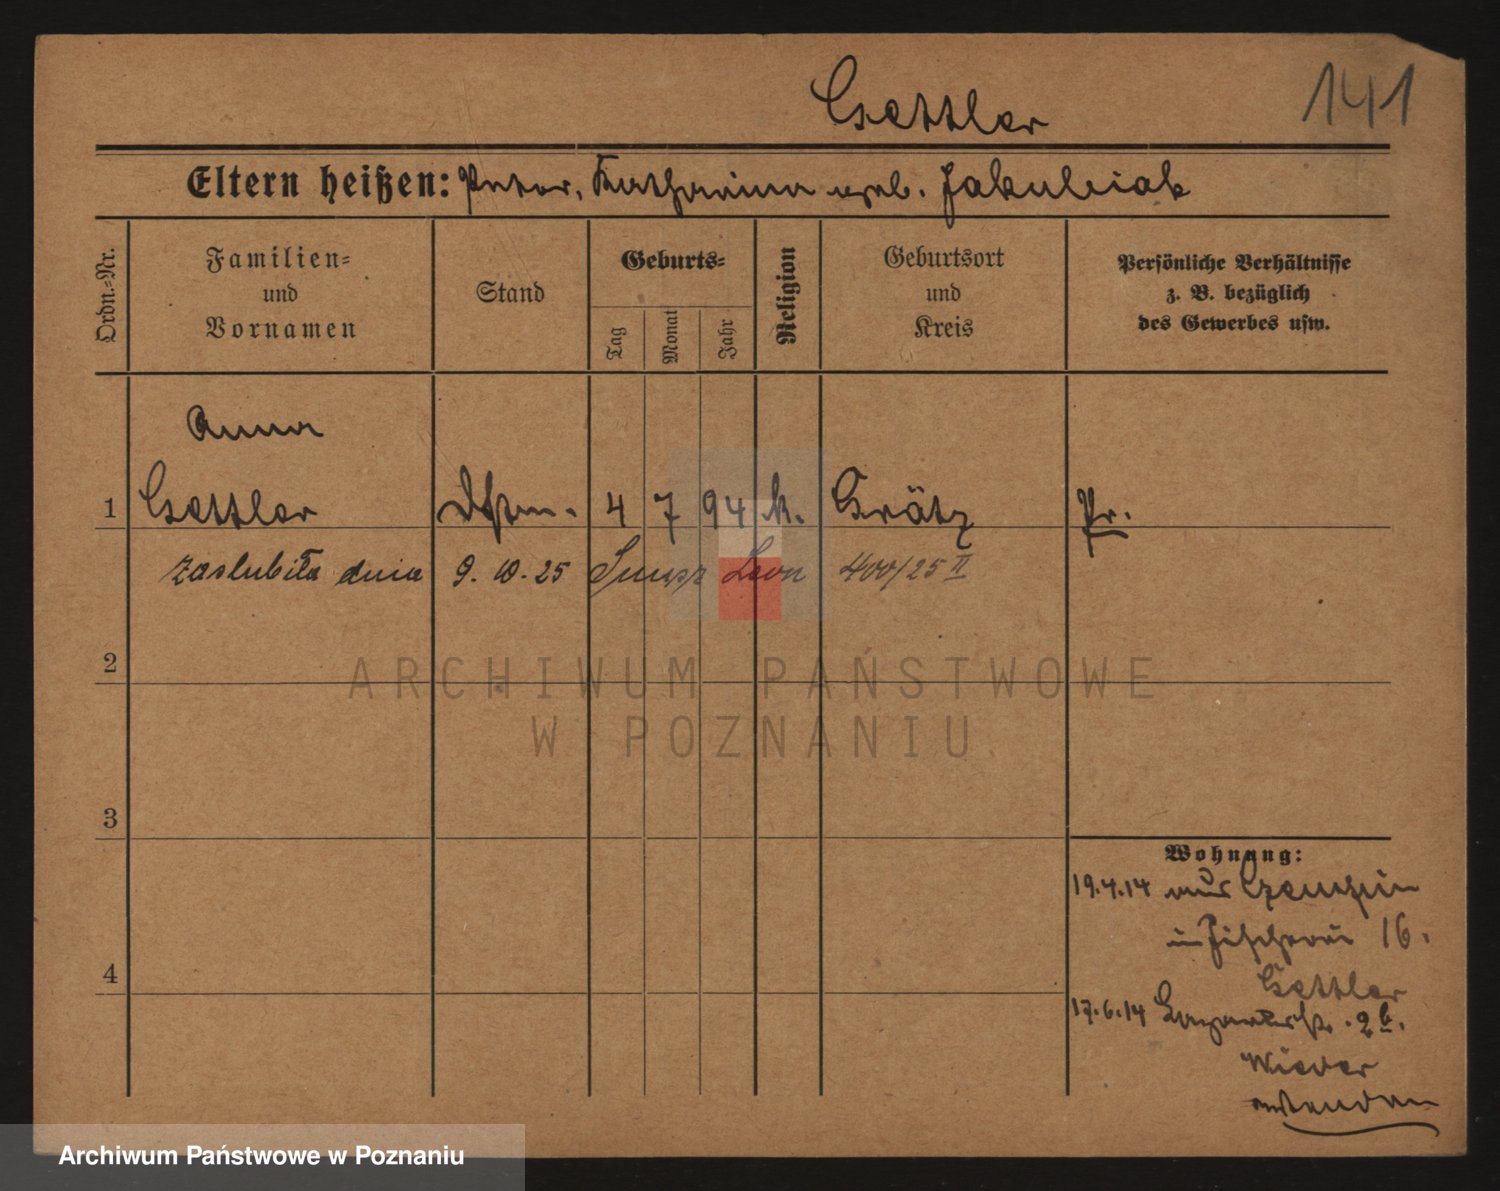 Gettler 141
Eltern heißen: Peter, Katharina geb. Jakubiak
Ordn.-Nr.
Familien-
und
Vornamen
Stand
Geburts-
Tag
Monat
Jahr
Religion
Geburtsort
und
Kreis
Persönliche Verhältnisse
z. B. bezüglich
des Gewerbes usw.
Anna
1 Gettler Dstm. 4 7 94 k. Grätz Pr.
zaslubiła dnia 9. 10. 25 Leon 400/25 II
2
ARCHIWUM PAŃSTWOWE
W POZNANIU
3
Wohnung:
19.4.14 aus
Fischerei 16.
4 Gettler
17.6.14 2b.
Wieder
Archiwum Państwowe w Poznaniu